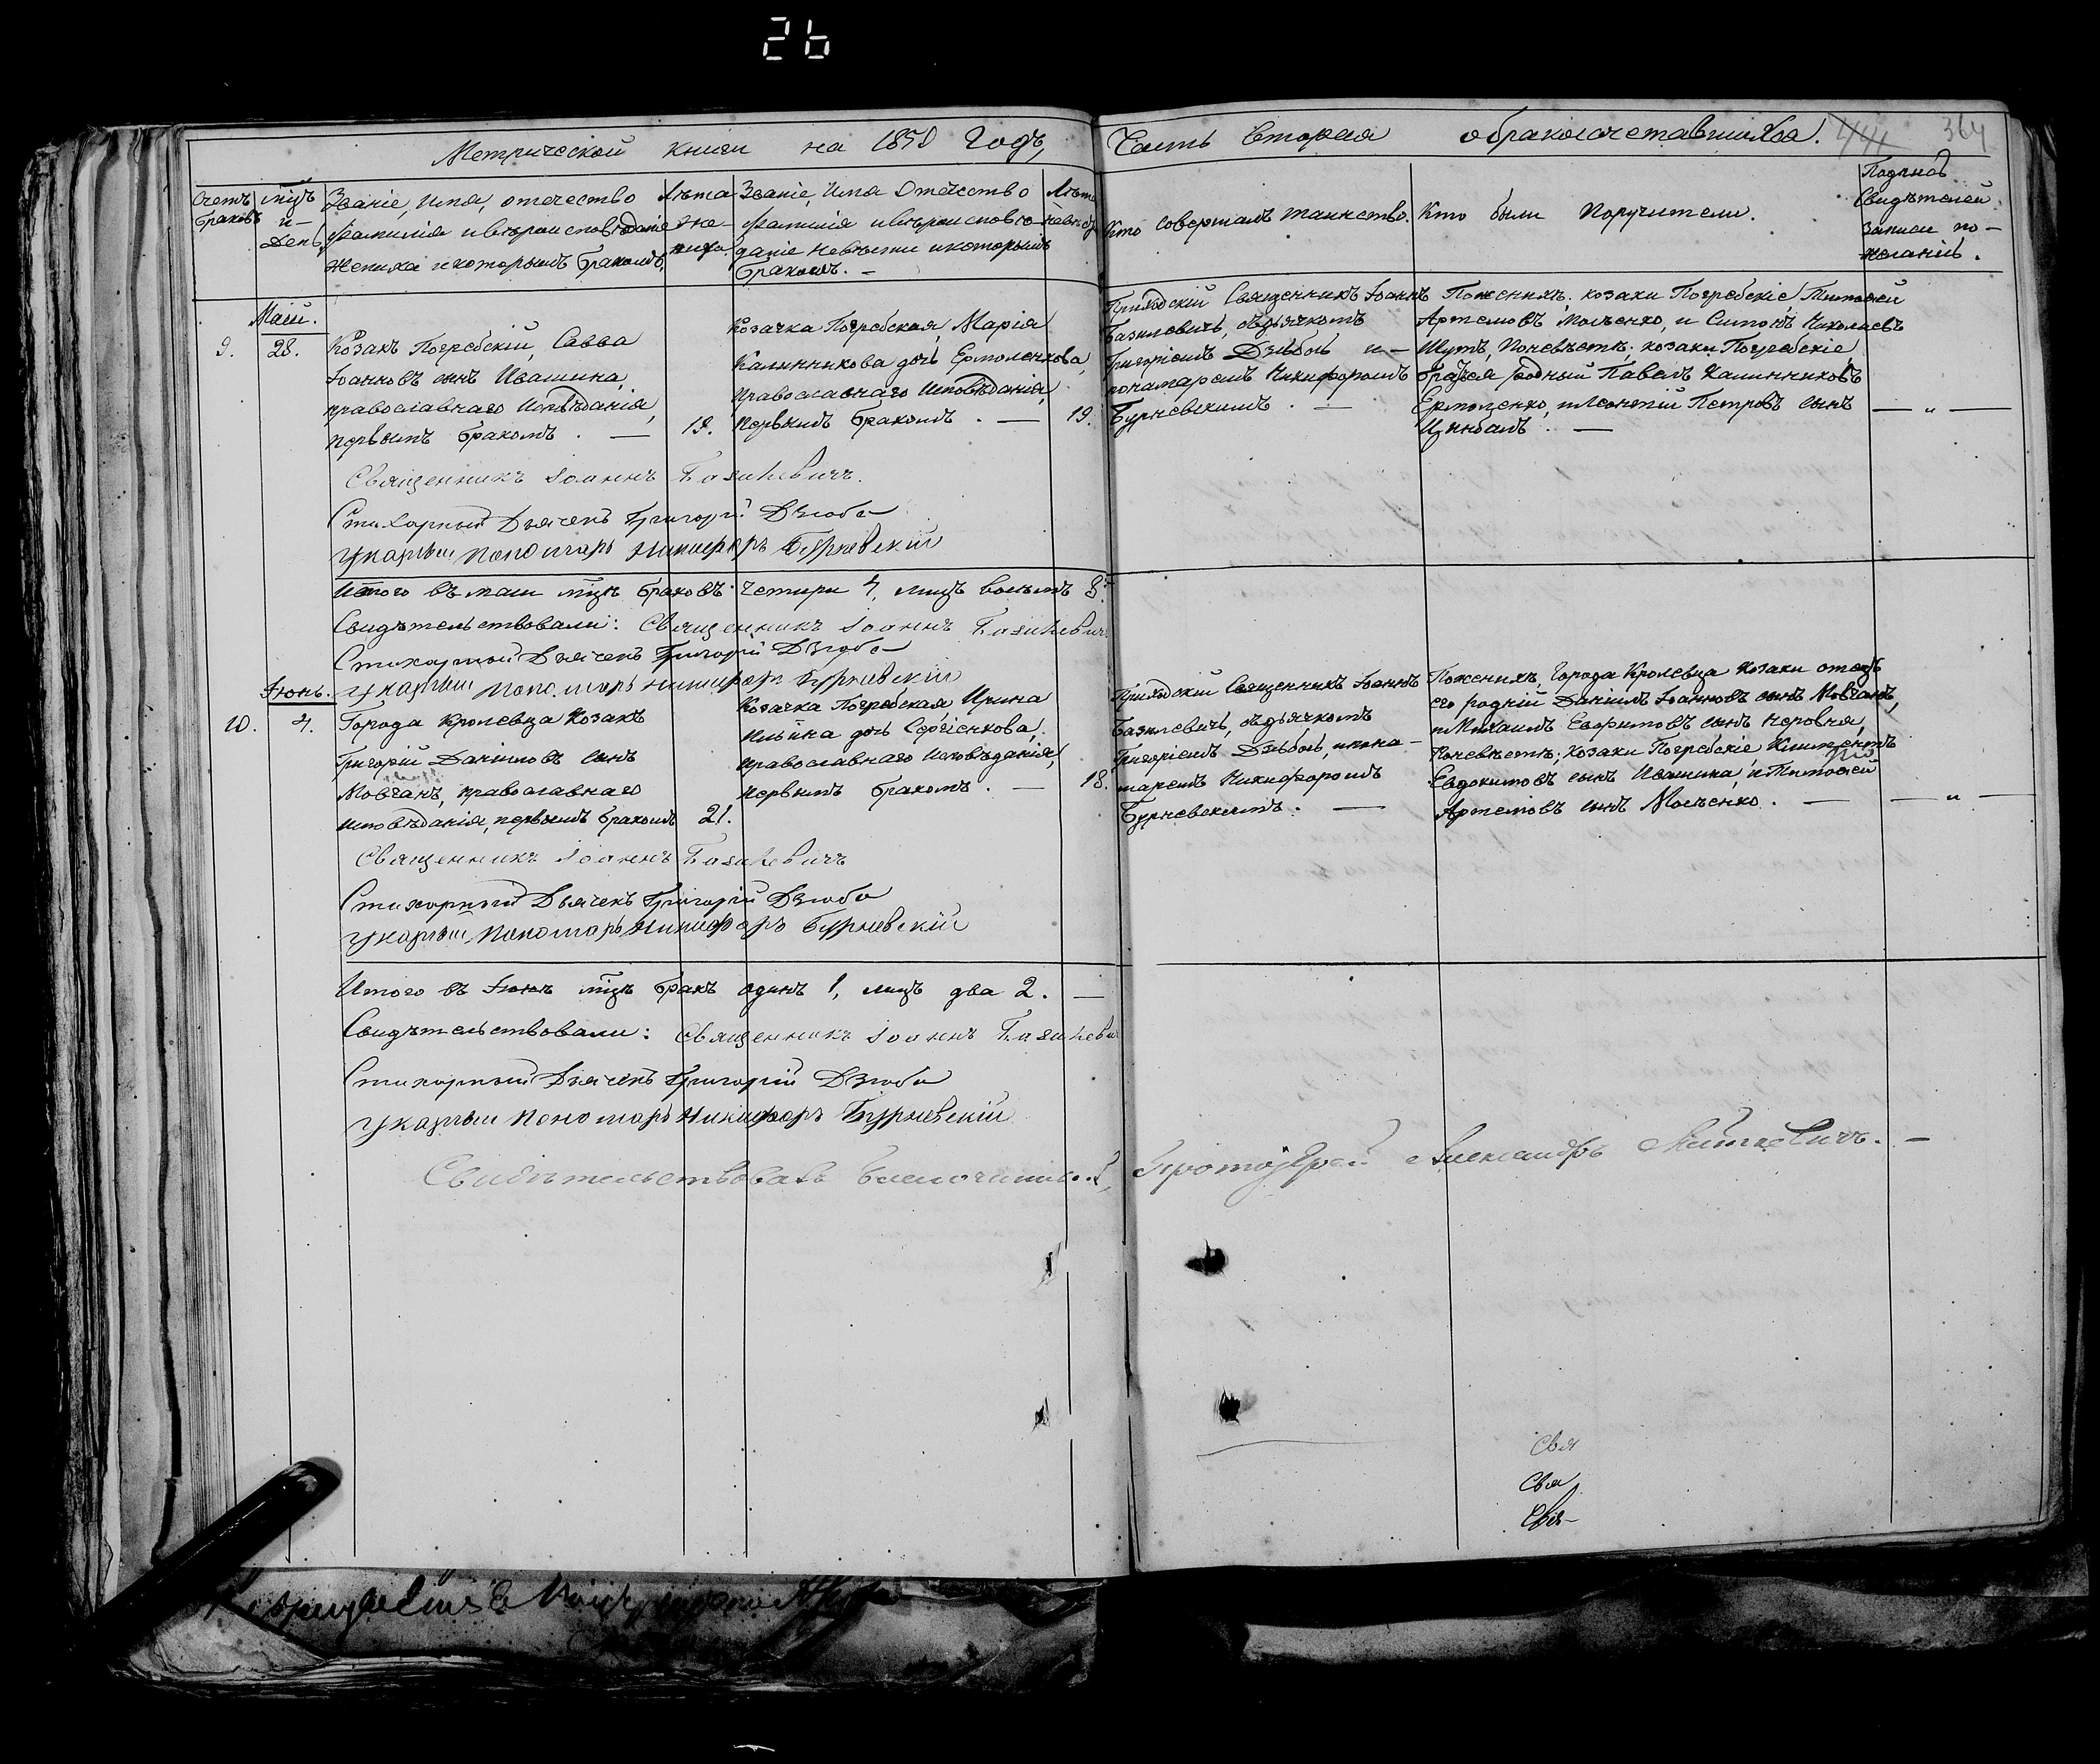 26
Метрической книги на 1850 Годъ,
Часть Вторая о бракосочетавшихся.
364
Счетъ браковъ
мцъ и День
Званіе, Имя, отечество
Фамилія и вѣроисповѣданіе
Жениха и которымъ бракомъ,
Лѣта жениха.
Званіе, Имя Отечество
Фамилія и вѣроисповѣ-
даніе Невѣсты и которымъ
бракомъ. –
Лѣта невѣсты
Кто совершалъ таинство.
Кто были Поручители.
Подпись
Свидѣтелей
записи по-
желанію.
Маій.
9.
28.
Козакъ Погребскій, Савва
Іоанновъ сынъ Ивашина,
православнаго Исповѣданія,
первымъ бракомъ. —
19.
Козачка Погребская, Марія
Калинникова дочь Ермоленкова,
Православнаго Исповѣданія,
Первымъ бракомъ. —
19.
Приходскій Священникъ Іоаннъ
Базилевичь, съ дьячкомъ
Григоріемъ Дзюбою и –
понамаремъ Никифоромъ
Бурневскимъ. —
По женихѣ: козаки Погребскіе, Тимофей
Артемовъ Мосѣенко, и Симонъ Николаевъ
Шутъ, По невѣстѣ; козаки Погребскіе
братъ родный Павелъ Калинниковъ
Ермоленко, и Леонтій Петровъ сынъ
Цимбалъ. —
— „ —
Священникъ Іоаннъ Базилевичъ.
Стихарный Дьячекъ Григорій Дзюба
указный Пономарь Никифоръ Бурневскій
Итого въ маіи мцѣ браковъ четыри 4, лицъ восемь 8.
Свидѣтельствовали: Священникъ Іоаннъ Базилевичъ
Стихарный Дьячекъ Григорій Дзюба
указный Пономарь Никифоръ Бурневскій
Іюнь.
10.
4.
Города Кролевца Козакъ
Григорій Даніиловъ сынъ
Мовчанъ, православнаго
исповѣданія, первымъ бракомъ
21.
Козачка Погребская Ирина
Ильина дочь Сергіенкова,
православнаго Исповѣданія,
первымъ бракомъ. —
18.
Приходскій Священникъ Іоаннъ
Базилевичь, съ дьячкомъ
Григоріемъ Дзюбою, и пона-
маремъ Никифоромъ
Бурневскимъ. —
По женихѣ, Города Кролевца Козаки отецъ
его родній Даніилъ Іоанновъ сынъ Мовчанъ,
и Михаилъ Евфимовъ сынъ Неровня,
По невѣстѣ; Козаки Погребскіе, Климентъ
Евдокимовъ сынъ Ивашина, и Тимофей
Артемовъ сынъ Мосѣенко. —
— „ —
Священникъ Іоаннъ Базилевичъ
Стихарный Дьячекъ Григорій Дзюба
указный Пономарь Никифоръ Бурневскій
Итого въ Іюнѣ мцѣ бракъ одинъ 1, лицъ два 2. —
Свидѣтельствовали: Священникъ Іоаннъ Базилевичъ
Стихарный Дьячекъ Григорій Дзюба
указный Пономарь Никифоръ Бурневскій
Свидѣтельствовалъ Благочинный, Протоіерей Александръ —
Свя
Свя
Свя-